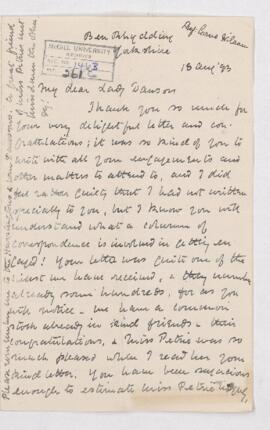 Ben Rhydding
Yorkshire
McGILL UNIVERSITY
ARCHIVES
ACC. NO. 1463
REF. 261
18 Aug '93
My dear Lady Dawson
Thank you so much for
your very delightful letter and con-
gratulations; it was so kind of you to
write with all your engagements and
other matters to attend to, and I did
feel rather guilty that I had not written
specially to you, but I know you will
understand what a volume of
correspondence is involved in getting en-
gaged! Your letter was quite one of the
we have received, & they number
already some hundreds, for as you
will notice - we have a common
stock already in kind friends & their
congratulations, & Miss Petrie was so
much pleased when I read her your
kind letter. You have been
enough to estimate Miss Petrie
Please remember me to the